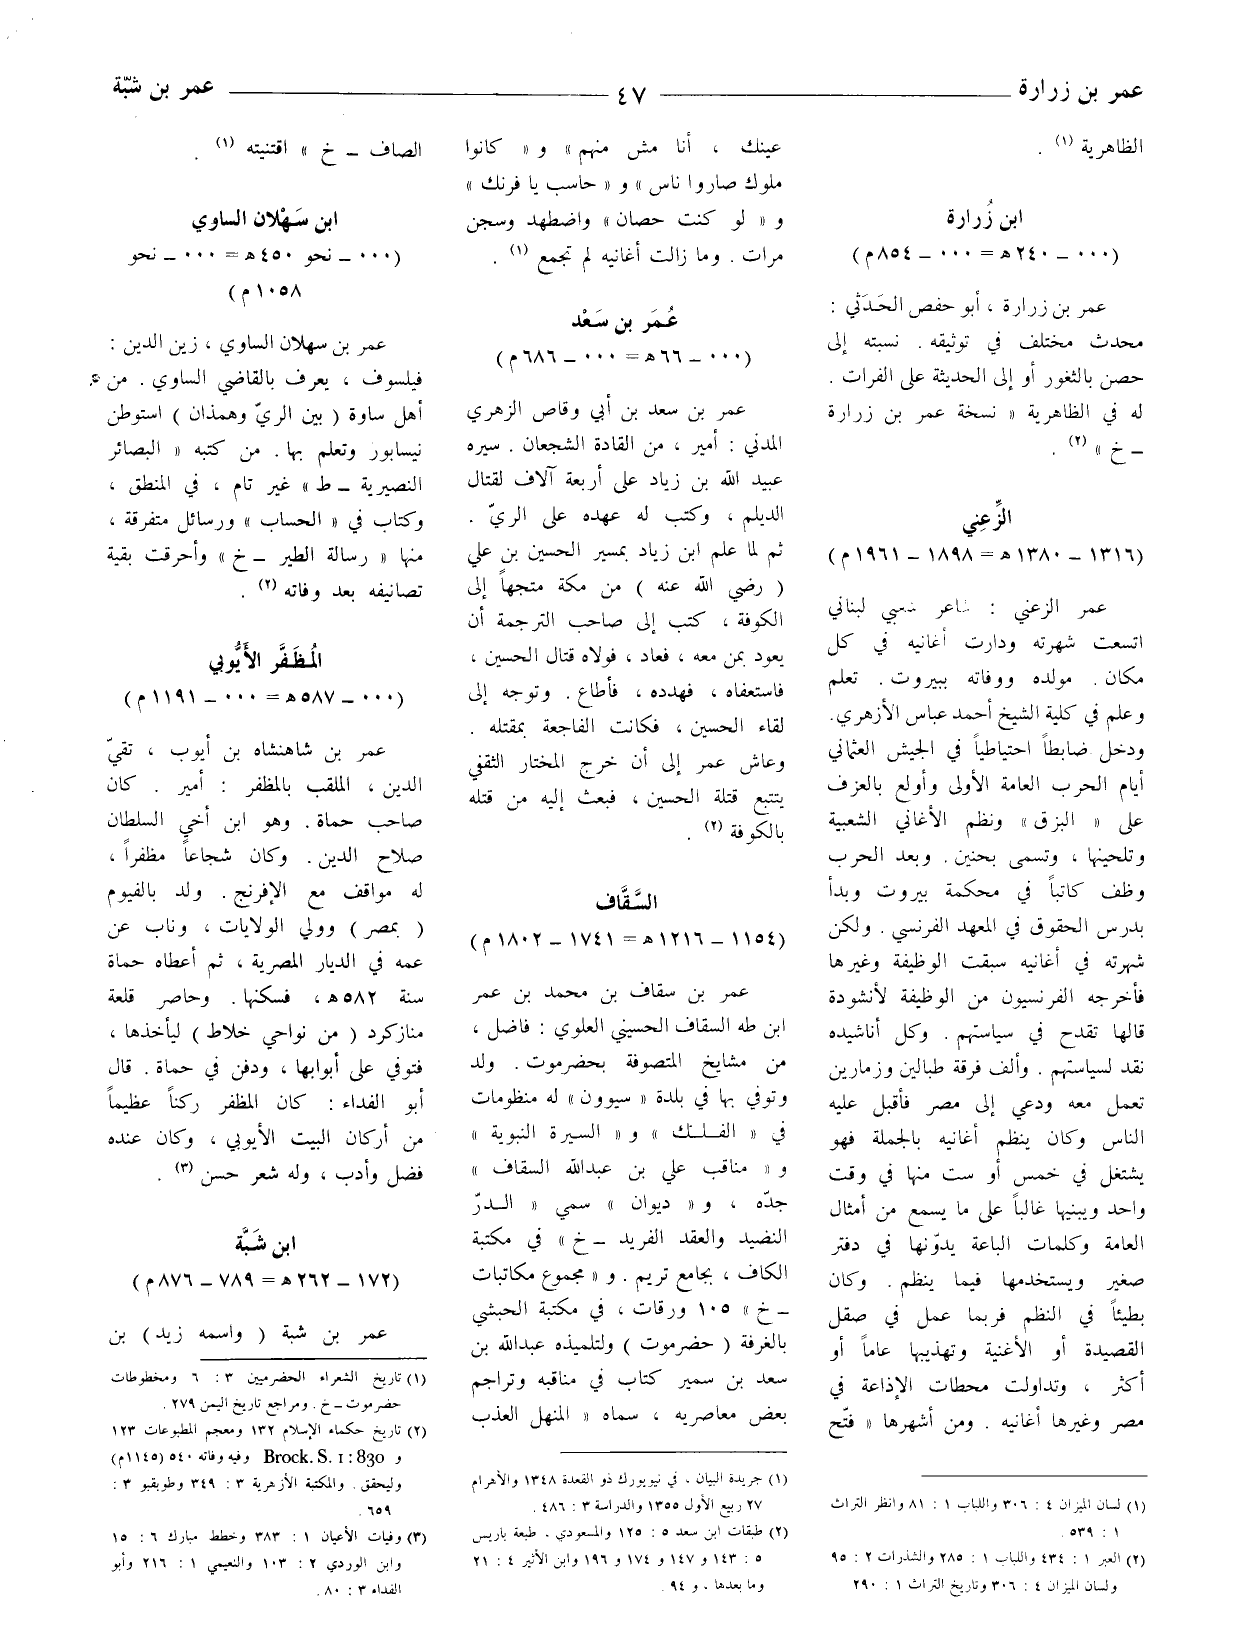 عمر بن زرارة ــــــ ٤٧ ــــــ عمر بن شبّة
الظاهرية (١) .
ابن زُرارة
(٠٠٠ ــ ٢٤٠ ه‍ = ٠٠٠ ــ ٨٥٤ م)
عمر بن زرارة ، أبو حفص الحَدَثي :
محدث مختلف في توثيقه . نسبته إلى
حصن بالثغور أو إلى الحديثة على الفرات .
له في الظاهرية « نسخة عمر بن زرارة
ــ خ » (٢) .
الزِّعِني
(١٣١٦ ــ ١٣٨٠ ه‍ = ١٨٩٨ ــ ١٩٦١ م)
عمر الزعني : شاعر شعبي لبناني
اتسعت شهرته ودارت أغانيه في كل
مكان . مولده ووفاته ببيروت . تعلم
وعلم في كلية الشيخ أحمد عباس الأزهري.
ودخل ضابطاً احتياطياً في الجيش العثماني
أيام الحرب العامة الأولى وأولع بالعزف
على « البزق » ونظم الأغاني الشعبية
وتلحينها ، وتسمى بحنين . وبعد الحرب
وظف كاتباً في محكمة بيروت وبدأ
بدرس الحقوق في المعهد الفرنسي . ولكن
شهرته في أغانيه سبقت الوظيفة وغيرها
فأخرجه الفرنسيون من الوظيفة لأنشودة
قالها تقدح في سياستهم . وكل أناشيده
نقد لسياستهم . وألف فرقة طبالين وزمارين
تعمل معه ودعي إلى مصر فأقبل عليه
الناس وكان ينظم أغانيه بالجملة فهو
يشتغل في خمس أو ست منها في وقت
واحد ويبنيها غالباً على ما يسمع من أمثال
العامة وكلمات الباعة يدوّنها في دفتر
صغير ويستخدمها فيما ينظم . وكان
بطيئاً في النظم فربما عمل في صقل
القصيدة أو الأغنية وتهذيبها عاماً أو
أكثر ، وتداولت محطات الإذاعة في
مصر وغيرها أغانيه . ومن أشهرها « فتّح
(١) لسان الميزان ٤ : ٣٠٦ واللباب ١ : ٨١ وانظر التراث
١ : ٥٣٩ .
(٢) العبر ١ : ٤٣٤ واللباب ١ : ٢٨٥ والشذرات ٢ : ٩٥
ولسان الميزان ٤ : ٣٠٦ وتاريخ التراث ١ : ٢٩٠
عينك ، أنا مش منهم » و « كانوا
ملوك صاروا ناس » و « حاسب يا فرنك »
و « لو كنت حصان » واضطهد وسجن
مرات . وما زالت أغانيه لم تجمع (١) .
عُمَر بن سَعْد
(٠٠٠ ــ ٦٦ ه‍ = ٠٠٠ ــ ٦٨٦ م)
عمر بن سعد بن أبي وقاص الزهري
المدني : أمير ، من القادة الشجعان . سيره
عبيد الله بن زياد على أربعة آلاف لقتال
الديلم ، وكتب له عهده على الريّ .
ثم لما علم ابن زياد بمسير الحسين بن علي
( رضي الله عنه ) من مكة متجهاً إلى
الكوفة ، كتب إلى صاحب الترجمة أن
يعود بمن معه ، فعاد ، فولاه قتال الحسين ،
فاستعفاه ، فهدده ، فأطاع . وتوجه إلى
لقاء الحسين ، فكانت الفاجعة بمقتله .
وعاش عمر إلى أن خرج المختار الثقفي
يتتبع قتلة الحسين ، فبعث إليه من قتله
بالكوفة (٢) .
السَّقَّاف
(١١٥٤ ــ ١٢١٦ ه‍ = ١٧٤١ ــ ١٨٠٢ م)
عمر بن سقاف بن محمد بن عمر
ابن طه السقاف الحسيني العلوي : فاضل ،
من مشايخ المتصوفة بحضرموت . ولد
وتوفي بها في بلدة « سيوون » له منظومات
في « الفلك » و « السيرة النبوية »
و « مناقب علي بن عبدالله السقاف »
جدّه ، و « ديوان » سمي « الدرّ
النضيد والعقد الفريد ــ خ » في مكتبة
الكاف ، بجامع تريم . و « مجموع مكاتبات
ــ خ » ١٠٥ ورقات ، في مكتبة الحبشي
بالغرفة ( حضرموت ) ولتلميذه عبدالله بن
سعد بن سمير كتاب في مناقبه وتراجم
بعض معاصريه ، سماه « المنهل العذب
(١) جريدة البيان ، في نيويورك ذو القعدة ١٣٤٨ والأهرام
٢٧ ربيع الأول ١٣٥٥ والدراسة ٣ : ٤٨٦ .
(٢) طبقات ابن سعد ٥ : ١٢٥ والمسعودي ، طبعة باريس
٥ : ١٤٣ و ١٤٧ و ١٧٤ و ١٩٦ وابن الأثير ٤ : ٢١
وما بعدها ، و ٩٤ .
الصاف ــ خ » اقتنيته (١) .
ابن سَهْلان الساوي
(٠٠٠ ــ نحو ٤٥٠ ه‍ = ٠٠٠ ــ نحو
١٠٥٨ م)
عمر بن سهلان الساوي ، زين الدين :
فيلسوف ، يعرف بالقاضي الساوي . من
أهل ساوة ( بين الريّ وهمذان ) استوطن
نيسابور وتعلم بها . من كتبه « البصائر
النصيرية ــ ط » غير تام ، في المنطق ،
وكتاب في « الحساب » ورسائل متفرقة ،
منها « رسالة الطير ــ خ » وأحرقت بقية
تصانيفه بعد وفاته (٢) .
المُظَفَّر الأَيُّوبي
(٠٠٠ ــ ٥٨٧ ه‍ = ٠٠٠ ــ ١١٩١ م)
عمر بن شاهنشاه بن أيوب ، تقيّ
الدين ، الملقب بالمظفر : أمير . كان
صاحب حماة . وهو ابن أخي السلطان
صلاح الدين . وكان شجاعاً مظفراً ،
له مواقف مع الإفرنج . ولد بالفيوم
( بمصر ) وولي الولايات ، وناب عن
عمه في الديار المصرية ، ثم أعطاه حماة
سنة ٥٨٢ ه‍ ، فسكنها . وحاصر قلعة
منازكرد ( من نواحي خلاط ) ليأخذها ،
فتوفي على أبوابها ، ودفن في حماة . قال
أبو الفداء : كان المظفر ركناً عظيماً
من أركان البيت الأيوبي ، وكان عنده
فضل وأدب ، وله شعر حسن (٣) .
ابن شَبَّة
(١٧٢ ــ ٢٦٢ ه‍ = ٧٨٩ ــ ٨٧٦ م)
عمر بن شبة ( واسمه زيد ) بن
(١) تاريخ الشعراء الحضرميين ٣ : ٦ ومخطوطات
حضرموت ــ خ . ومراجع تاريخ اليمن ٢٧٩ .
(٢) تاريخ حكماء الإسلام ١٣٢ ومعجم المطبوعات ١٢٣
و Brock. S. 1 : 830 وفيه وفاته ٥٤٠ (١١٤٥ م)
وليحقق . والمكتبة الأزهرية ٣ : ٣٤٩ وطوبقبو ٣ :
٦٥٩ .
(٣) وفيات الأعيان ١ : ٣٨٣ وخطط مبارك ٦ : ١٥
وابن الوردي ٢ : ١٠٣ والنعيمي ١ : ٢١٦ وأبو
الفداء ٣ : ٨٠ .